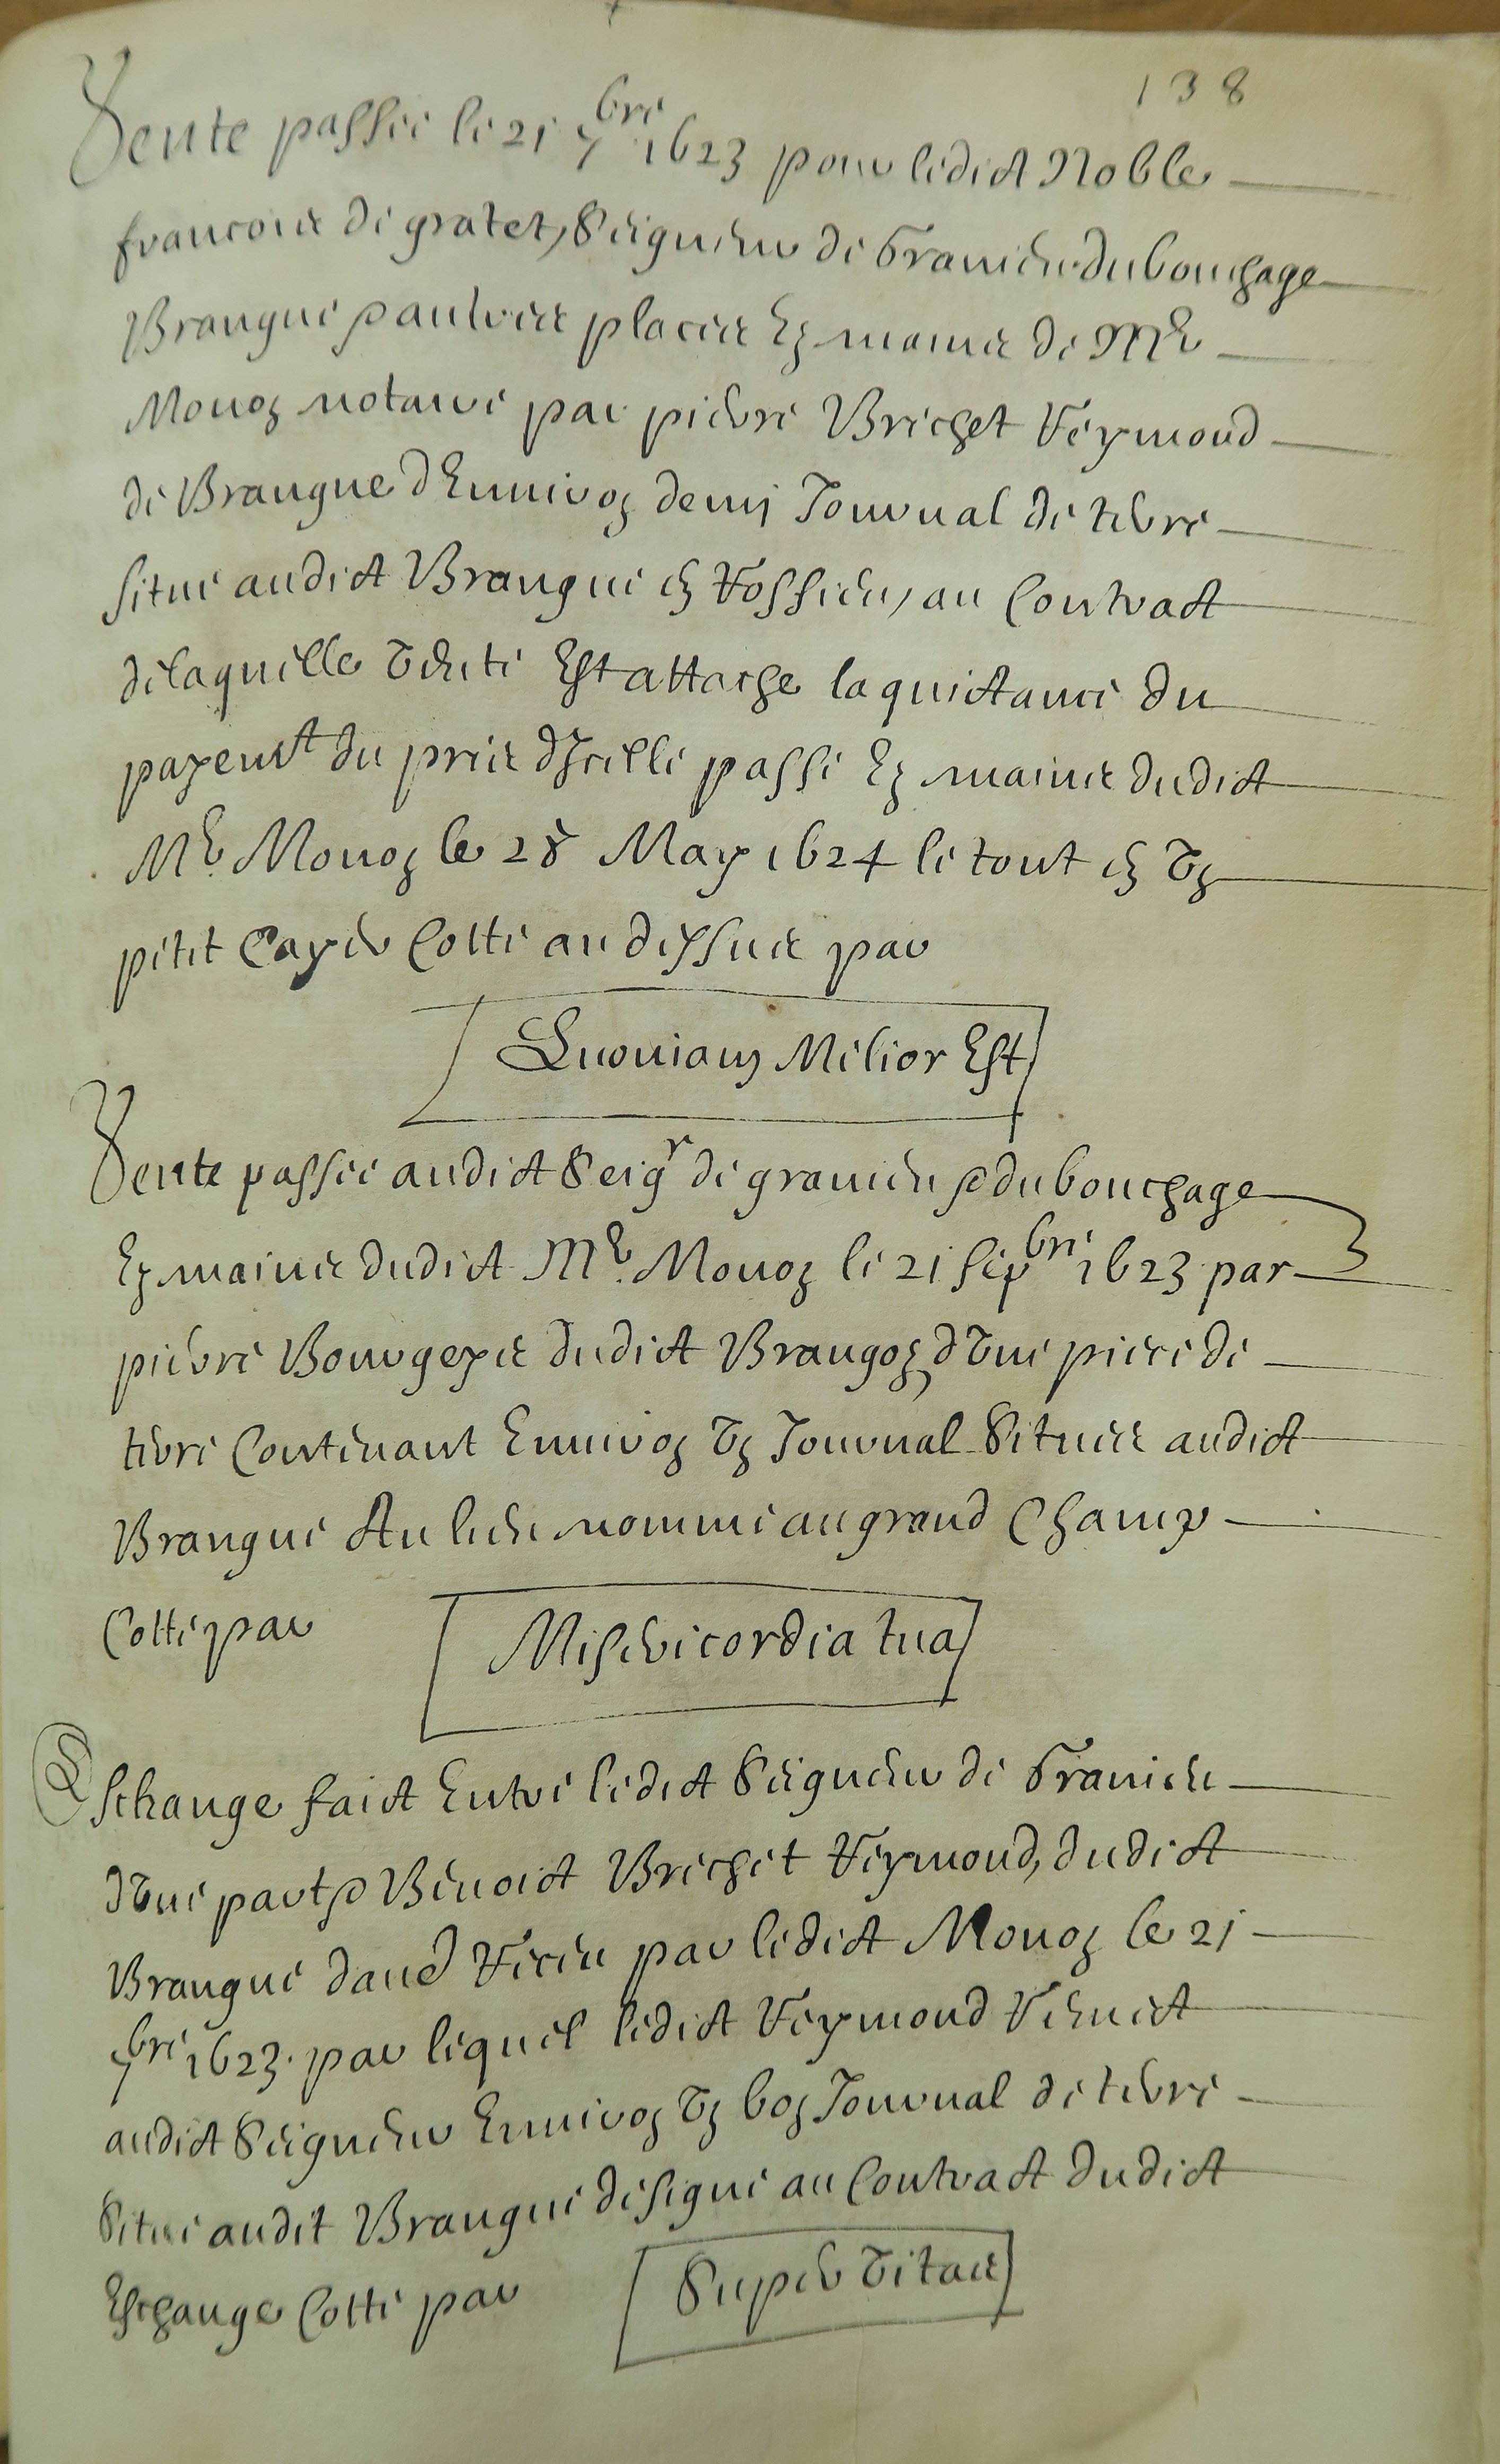 138
Vente passée le 21 7bre 1623 pour ledict Noble
francois de gratet, Seigneur de Granieu du bouchage
Brangue & aultres places Ez mains de Me
Monon notaire par pierre Brechet Veymond
de Brangue d'Environ demy Journal de terre
situe audict Brangue en Vossieu, au Contract
de laquelle vente Est attache la quictance du
payemt du prix d'Icelle passé Ez mains dudict
Me Monon le 28 May 1624 le tout en un
petit Cayer Cotté au dessus par
Quoniam Melior Est
Vente passée audict Seigr de granieu & du bouchage
Ez mains dudict Me Monon le 21 sepbre 1623 par
pierre Bourgeys dudict Brangoz, d'une piece de
terre Contenant Environ un Journal Situee audict
Brangue Au lieu nommé au grand Champ
Cotté par
Misericordia tua
Eschange faict Entre ledict Seigneur de Granieu
d'une part & Benoict Brechet Veymond, dudict
Brangue dant Receu par ledict Monon le 21
7bre 1623. par lequel ledict Veymond Remect
audict Seigneur Environ un bon Journal de terre
Situé audit Brangue designé au Contract dudict
Eschange Cotté par
Super vitas